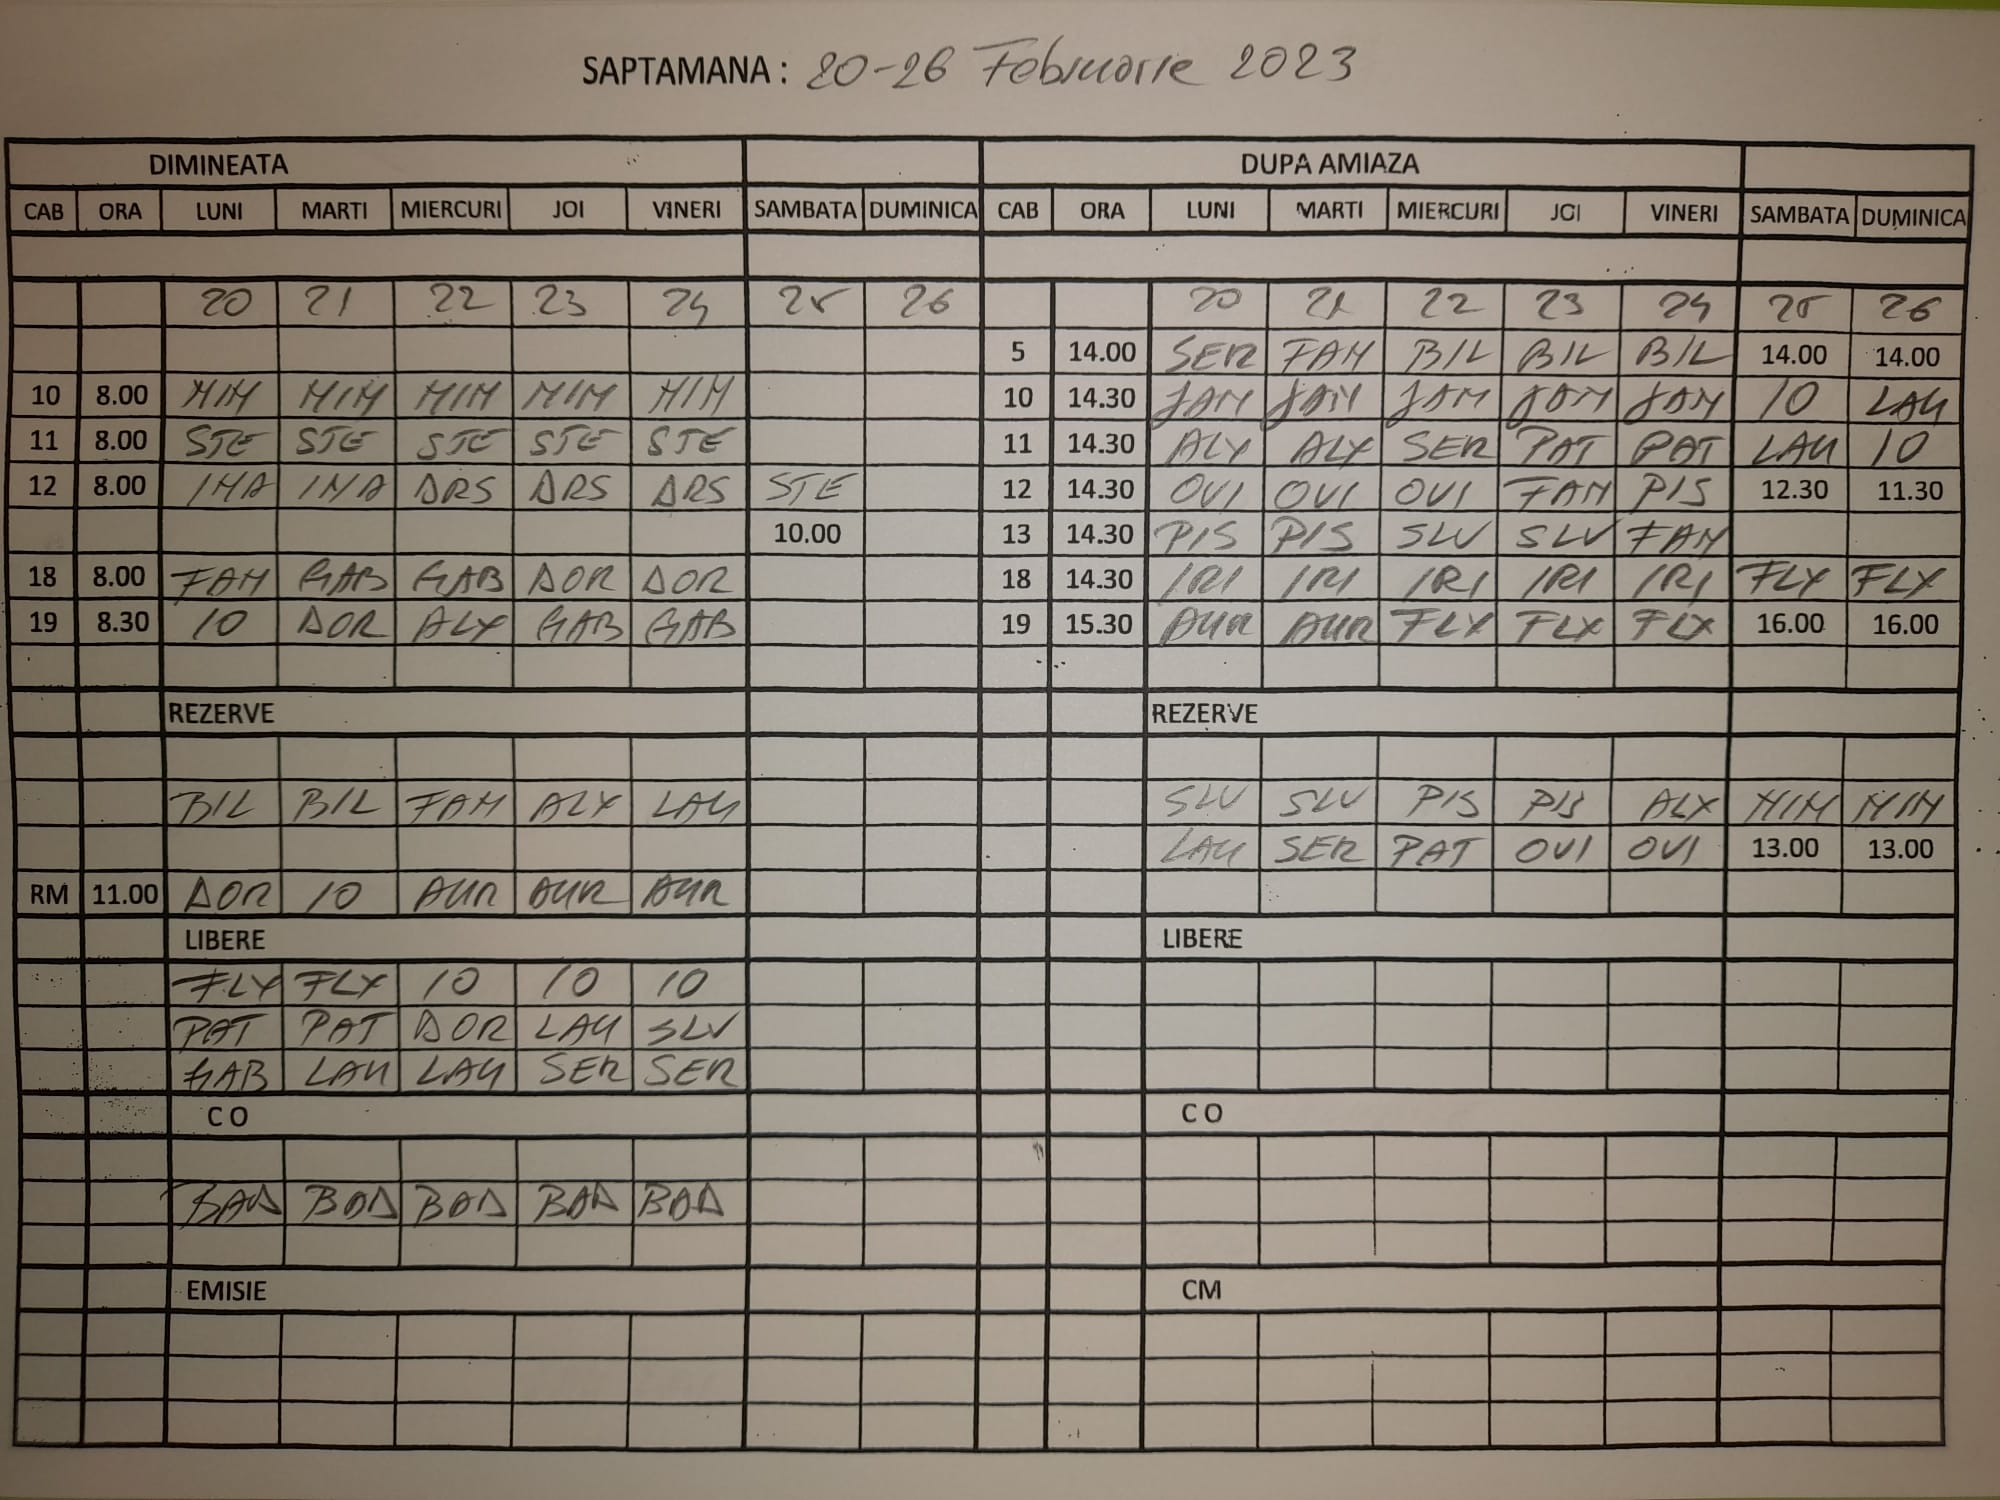 SAPTAMANA : 20-26 Februarie 2023
DIMINEATA DUPA AMIAZA
CAB ORA LUNI MARTI MIERCURI JOI VINERI SAMBATA DUMINICA CAB ORA LUNI MARTI MIERCURI JOI VINERI SAMBATA DUMINICA
20 21 22 23 24 25 26 20 21 22 23 24 25 26
5 14.00 SER FAM BIL BIL BIL 14.00 14.00
10 8.00 MIM MIM MIM MIM MIM 10 14.30 JAM JAM JAM JAM JAM 10 LAU
11 8.00 STE STE STE STE STE 11 14.30 ALX ALX SER PAT PAT LAU 10
12 8.00 INA INA DRS DRS DRS STE 12 14.30 OVI OVI OVI FAM PIS 12.30 11.30
10.00 13 14.30 PIS PIS SLV SLV FAM
18 8.00 FAM GAB GAB DOR DOR 18 14.30 IRI IRI IRI IRI IRI FLX FLX
19 8.30 10 DOR ALX GAB GAB 19 15.30 AUR AUR FLX FLX FLX 16.00 16.00
REZERVE REZERVE
BIL BIL FAM ALX LAU SLV SLV PIS PIS ALX MIM MIM
LAU SER PAT OVI OVI 13.00 13.00
RM 11.00 DOR 10 AUR AUR AUR
LIBERE LIBERE
FLX FLX 10 10 10
PAT PAT DOR LAU SLV
GAB LAU LAU SER SER
C O C O
BAD BAD BAD BAD BAD
EMISIE CM